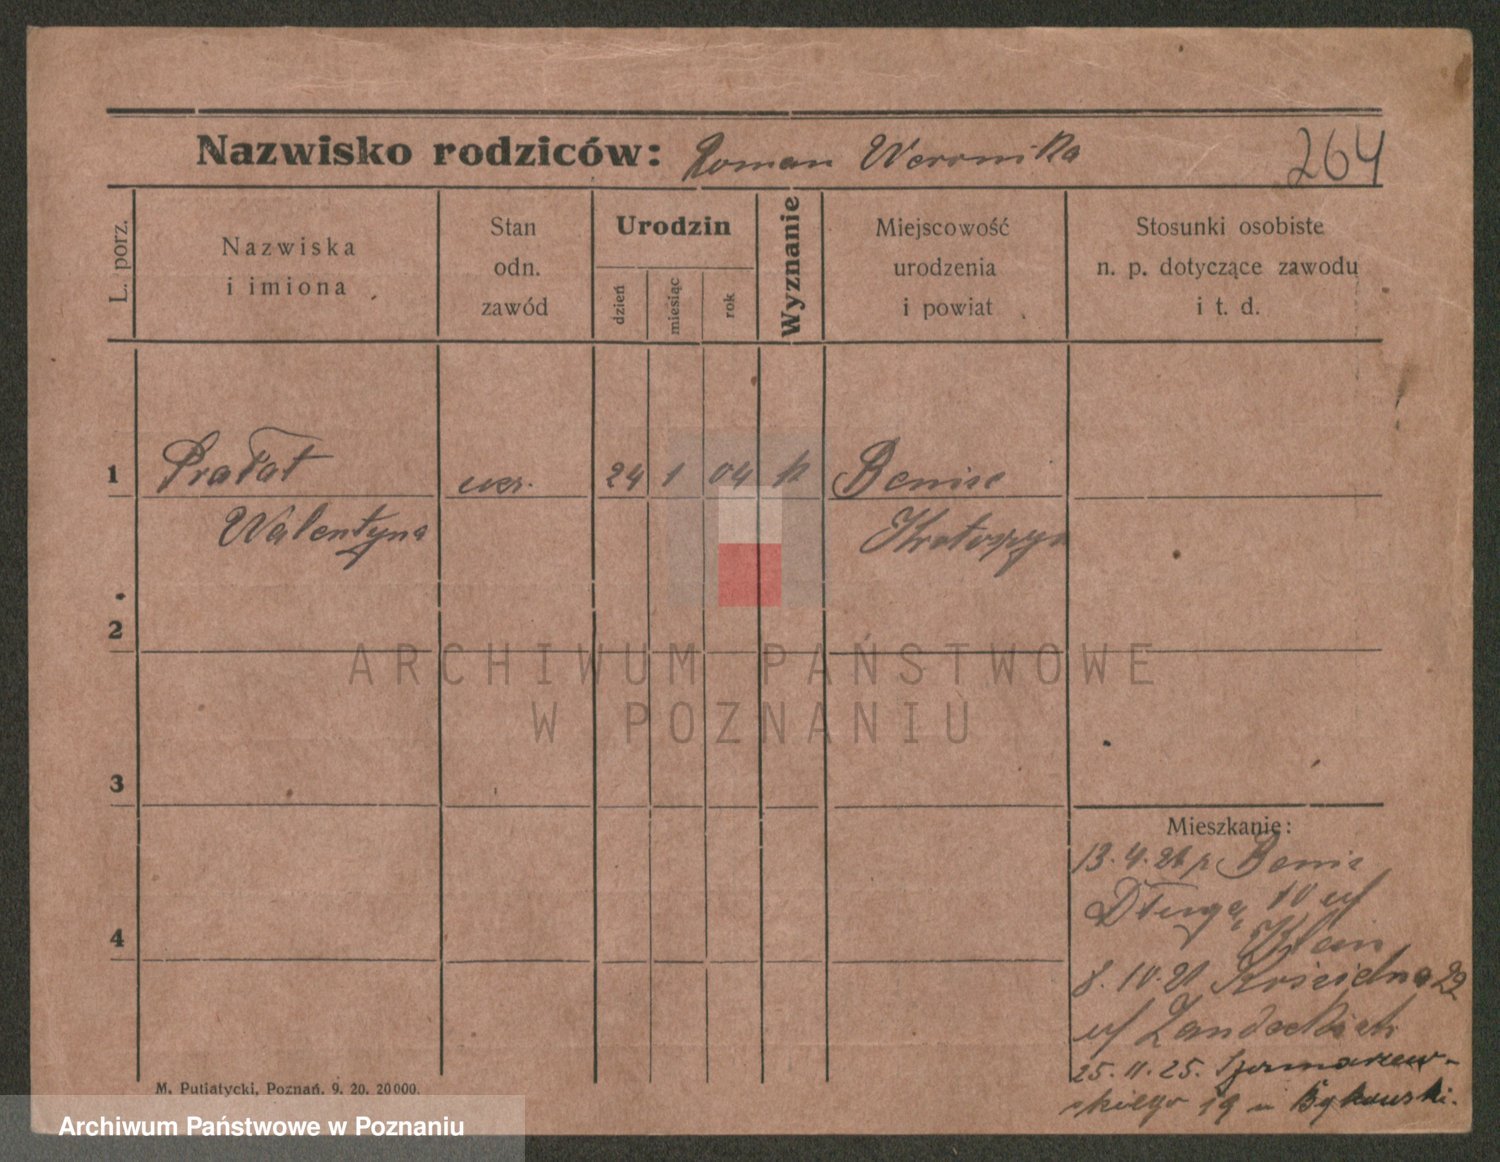 Nazwisko rodziców: Roman Weronika 264
L. porz.
Nazwiska
i imiona
Stan
odn.
zawód
Urodzin
dzień
miesiąc
rok
Wyznanie
Miejscowość
urodzenia
i powiat
Stosunki osobiste
n. p. dotyczące zawodu
i t. d.
1 Prałat 24 1 04 k Benice
Walentyna Krotoszyn
2
3
4
Mieszkanie:
13.4.21 Benice
Długa 10 u/
8.10.21 Kościelna 22
u/ Zandeckich
25.11.25. Szamarzew-
skiego 19 u Bykowski.
M. Putiatycki, Poznań. 9. 20. 20000.
ARCHIWUM PAŃSTWOWE
W POZNANIU
Archiwum Państwowe w Poznaniu